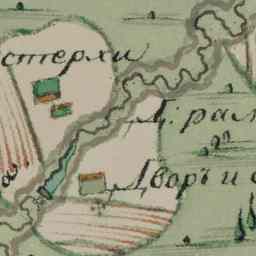 стерхи
Д: рам
Дворъ и с